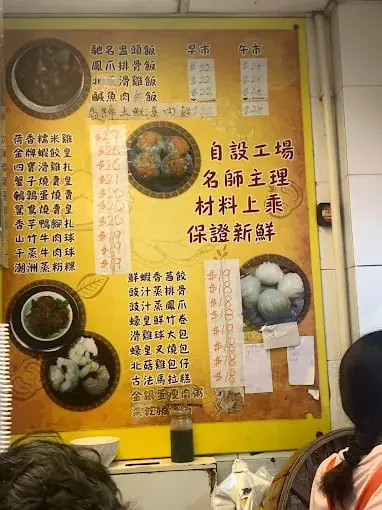 馳名盅頭飯 早市 午市
鳳爪排骨飯 $22 $24
北菇滑雞飯 $22 $24
鹹魚肉餅飯 $22 $24
$22 $24
自設工場
名師主理
材料上乘
保證新鮮
荷香糯米雞 $27
金牌蝦餃皇 $26
四寶滑雞扎 $26
蟹子燒賣皇 $21
鵪鶉蛋燒賣 $20
鴛鴦燒賣皇 $20
香芋鴨腳扎 $20
山竹牛肉球 $19
干蒸牛肉球 $19
潮洲蒸粉粿 $19
鮮蝦香茜餃 $19
豉汁蒸排骨 $18
豉汁蒸鳳爪 $18
蠔皇鮮竹卷 $18
滑雞球大包 $19
蠔皇叉燒包 $18
北菇雞包仔 $18
古法馬拉糕 $18
金銀蛋瘦肉粥